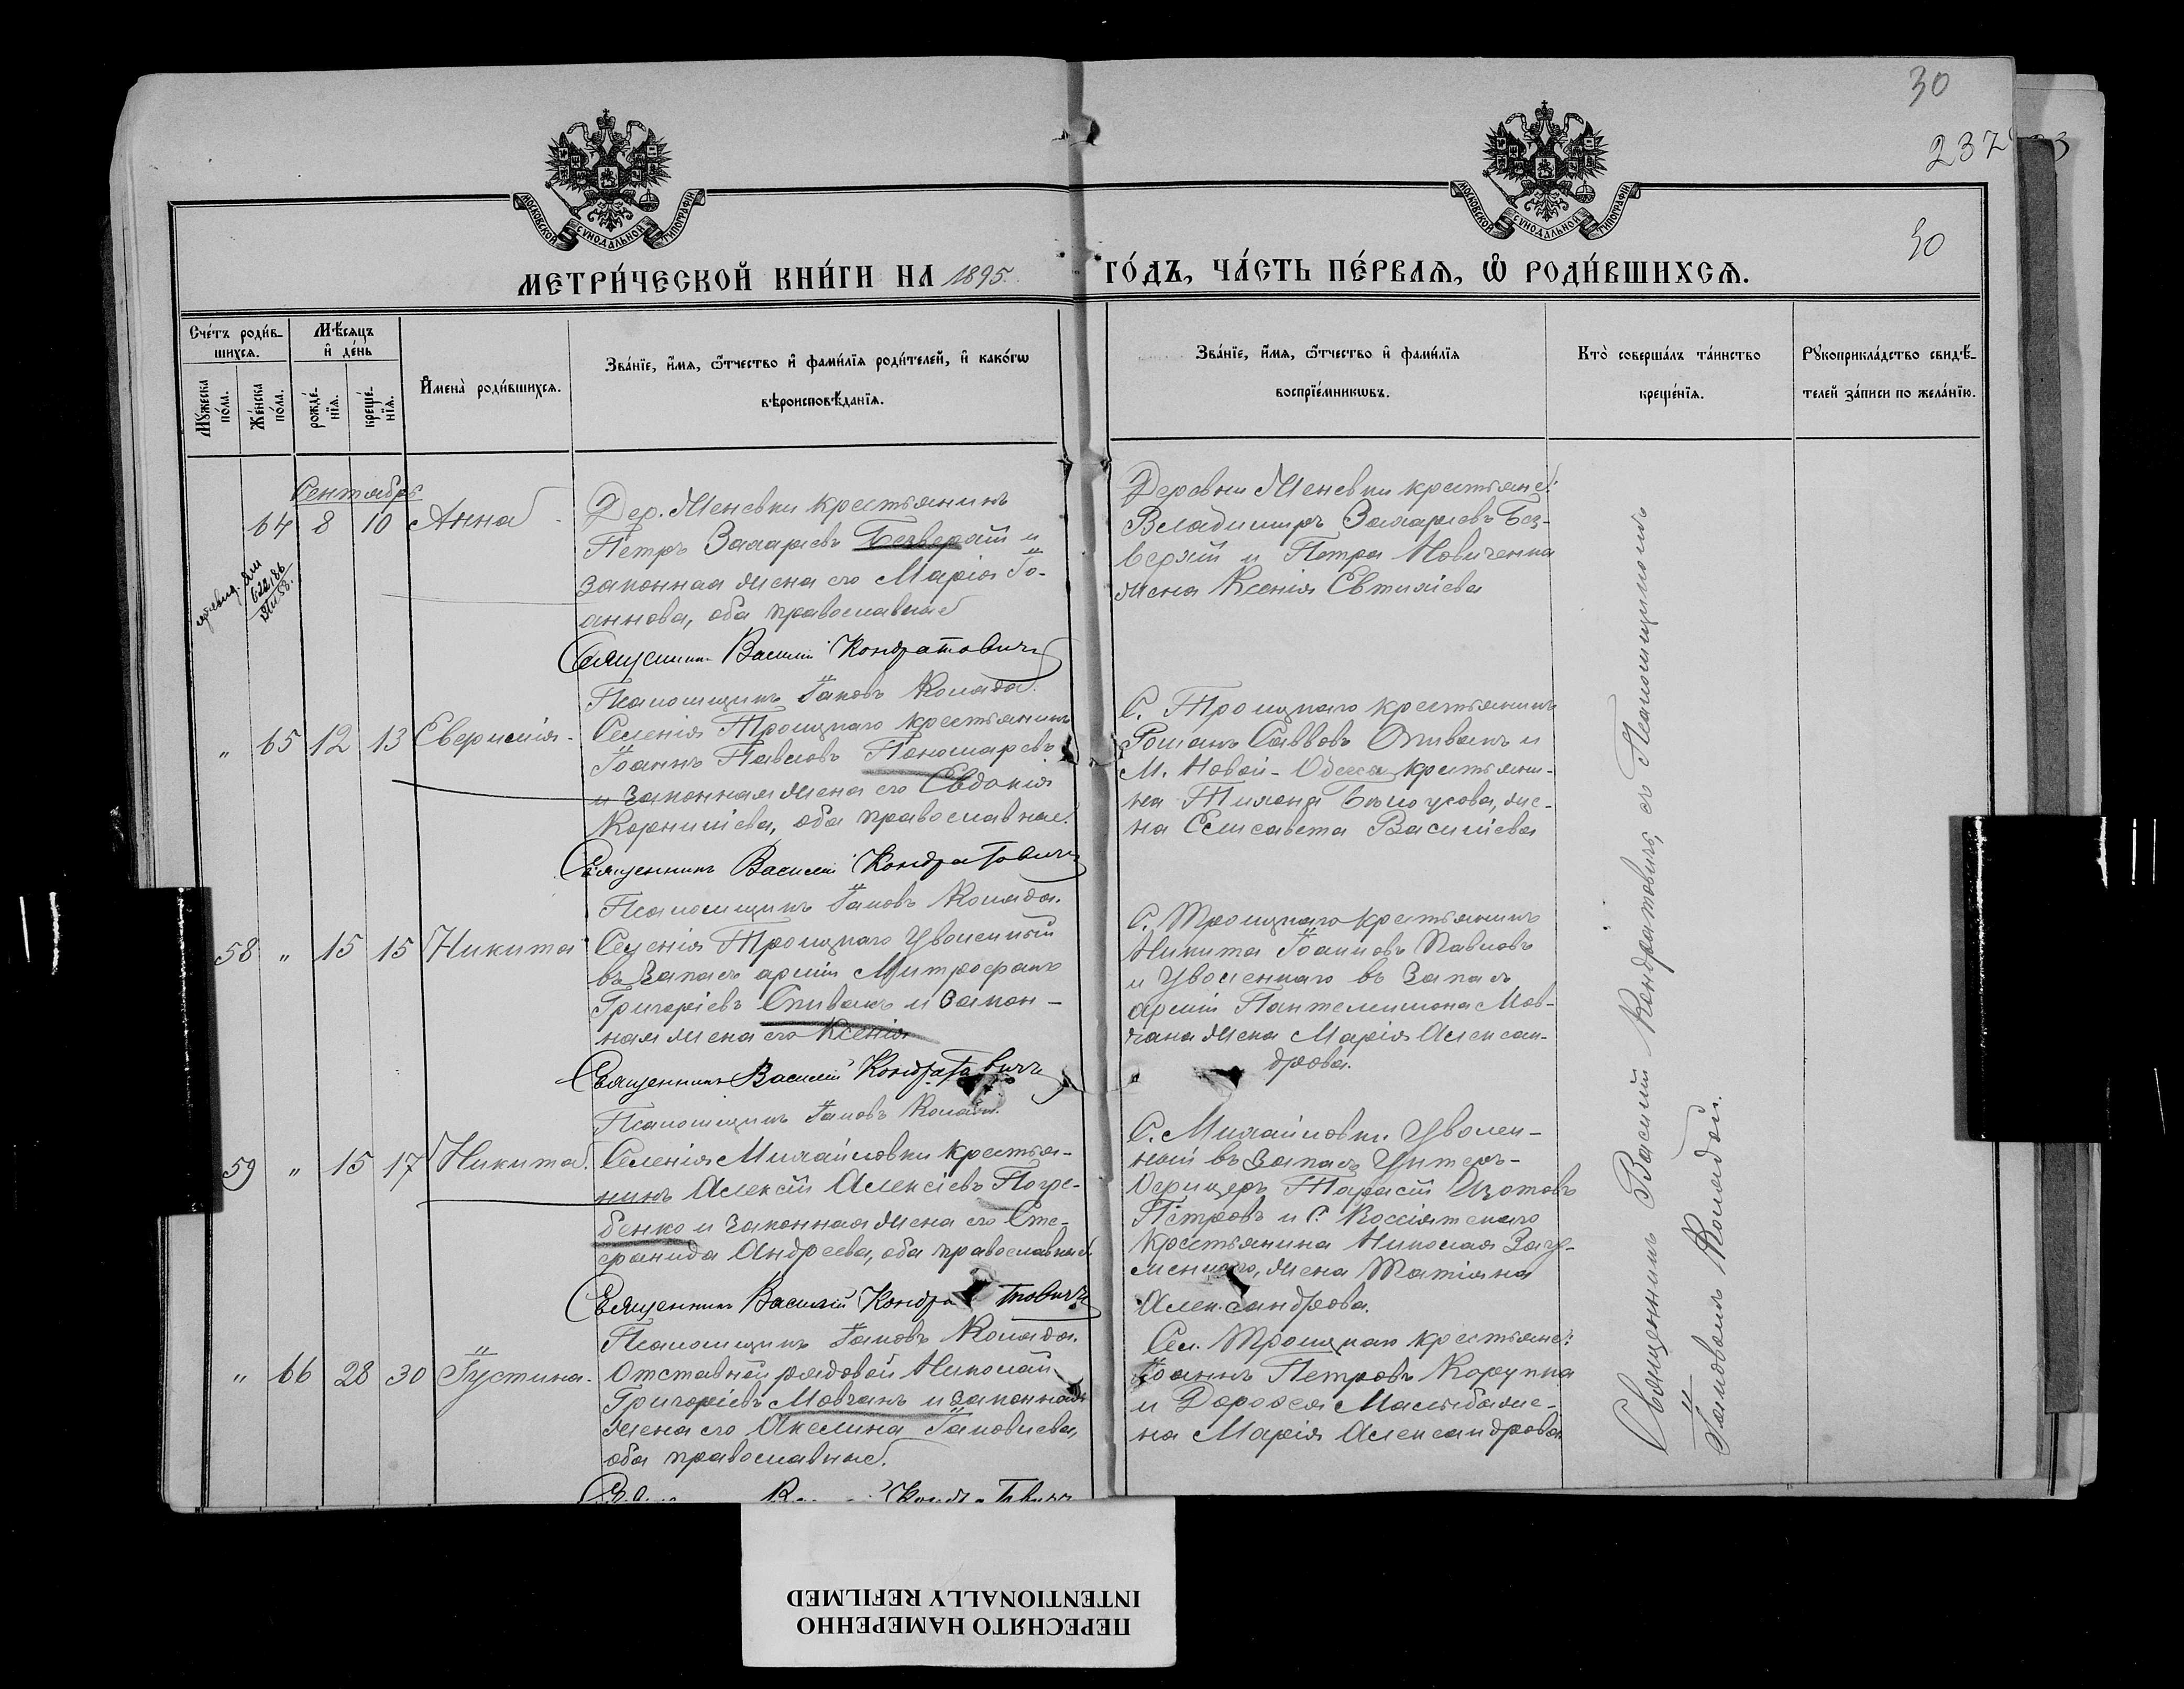 30
237
30
МОСКОВСКОЙ СѴНОДАЛЬНОЙ ТИПОГРАФІИ
МОСКОВСКОЙ СѴНОДАЛЬНОЙ ТИПОГРАФІИ
МЕТРИ́ЧЕСКОЙ КНИ́ГИ НА 1895 ГО́ДЪ, ЧА́СТЬ ПЕ́РВАѦ, Ѡ҆ РОДИ́ВШИХСѦ.
Сче́тъ роди́в-
шихсѧ.
Мꙋ́жеска по́ла.
Же́нска по́ла.
Мѣ́сѧцъ
и҆ де́нь
рожде́-
нїѧ.
креще́-
нїѧ.
И҆мена̀ роди́вшихсѧ.
Зва́нїе, и҆́мѧ, ѻ҆́тчество и҆ фами́лїѧ роди́телей, и҆ како́гѡ
вѣроисповѣ́данїѧ.
Зва́нїе, и҆́мѧ, ѻ҆́тчество и҆ фами́лїѧ
воспрїе́мникѡвъ.
Кто̀ соверша́лъ та́инство
креще́нїѧ.
Рꙋкоприкла́дство свидѣ́-
телей за́писи по жела́нїю.
Сентябрь
64 8 10 Анна
Дер. Меневки крестьянинъ
Петръ Захаріевъ Безверхій и
законная жена его Марія Іо-
аннова, оба православные
Священникъ Василій Кондратовичъ
Псаломщикъ Іаковъ Коляда.
Деревни Меневки крестьяне:
Владиміръ Захаріевъ Без-
верхій и Петра Новиченка
жена Ксенія Евтихіева
" 65 12 13 Евфимія
Селенія Троицкаго крестьянинъ
Іоаннъ Павловъ Пономаревъ
и законная жена его Евдокія
Корниліева, оба православные.
Священникъ Василій Кондратовичъ
Псаломщикъ Іаковъ Коляда.
С. Троицкаго крестьянинъ
Романъ Саввовъ Спивакъ и
М. Новой-Одессы крестьяни-
на Тихона Бѣлоусова, же-
на Елисавета Василіева
58 " 15 15 Никита
Селенія Троицкаго уволенный
въ запасъ арміи Митрофанъ
Григоріевъ Спивакъ и закон-
ная жена его Ксенія
Священникъ Василій Кондратовичъ
Псаломщикъ Іаковъ Коляда.
С. Троицкаго крестьянинъ
Никита Іоанновъ Павловъ
и уволеннаго въ запасъ
арміи Пантелимона Мов-
чана жена Марія Алексан-
дрова.
59 " 15 17 Никита.
Селенія Михайловки крестья-
нинъ Алексій Алексіевъ Погре-
бенко и законная жена его Сте-
фанида Андреева, оба православные.
Священникъ Василій Кондратовичъ
Псаломщикъ Іаковъ Коляда.
С. Михайловки уволен-
ный въ запасъ Унтеръ-
Офицеръ Тарасій Изотовъ
Петровъ и С. Коссіятскаго
крестьянина Николая Загу-
меннаго, жена Татіяна
Александрова.
" 66 28 30 Іустина.
Отставной рядовой Николай
Григоріевъ Мовчанъ и законная
жена его Акелина Іаковлева,
оба православные.
Сел. Троицкаго крестьяне:
Іоаннъ Петровъ Корупка
и Дорофея Малыба же-
на Марія Александрова
Священникъ Василій Кондратовичъ, съ Псаломщикомъ
Іаковомъ Колядой.
ПЕРЕСНЯТО НАМЕРЕННО
INTENTIONALLY REFILMED